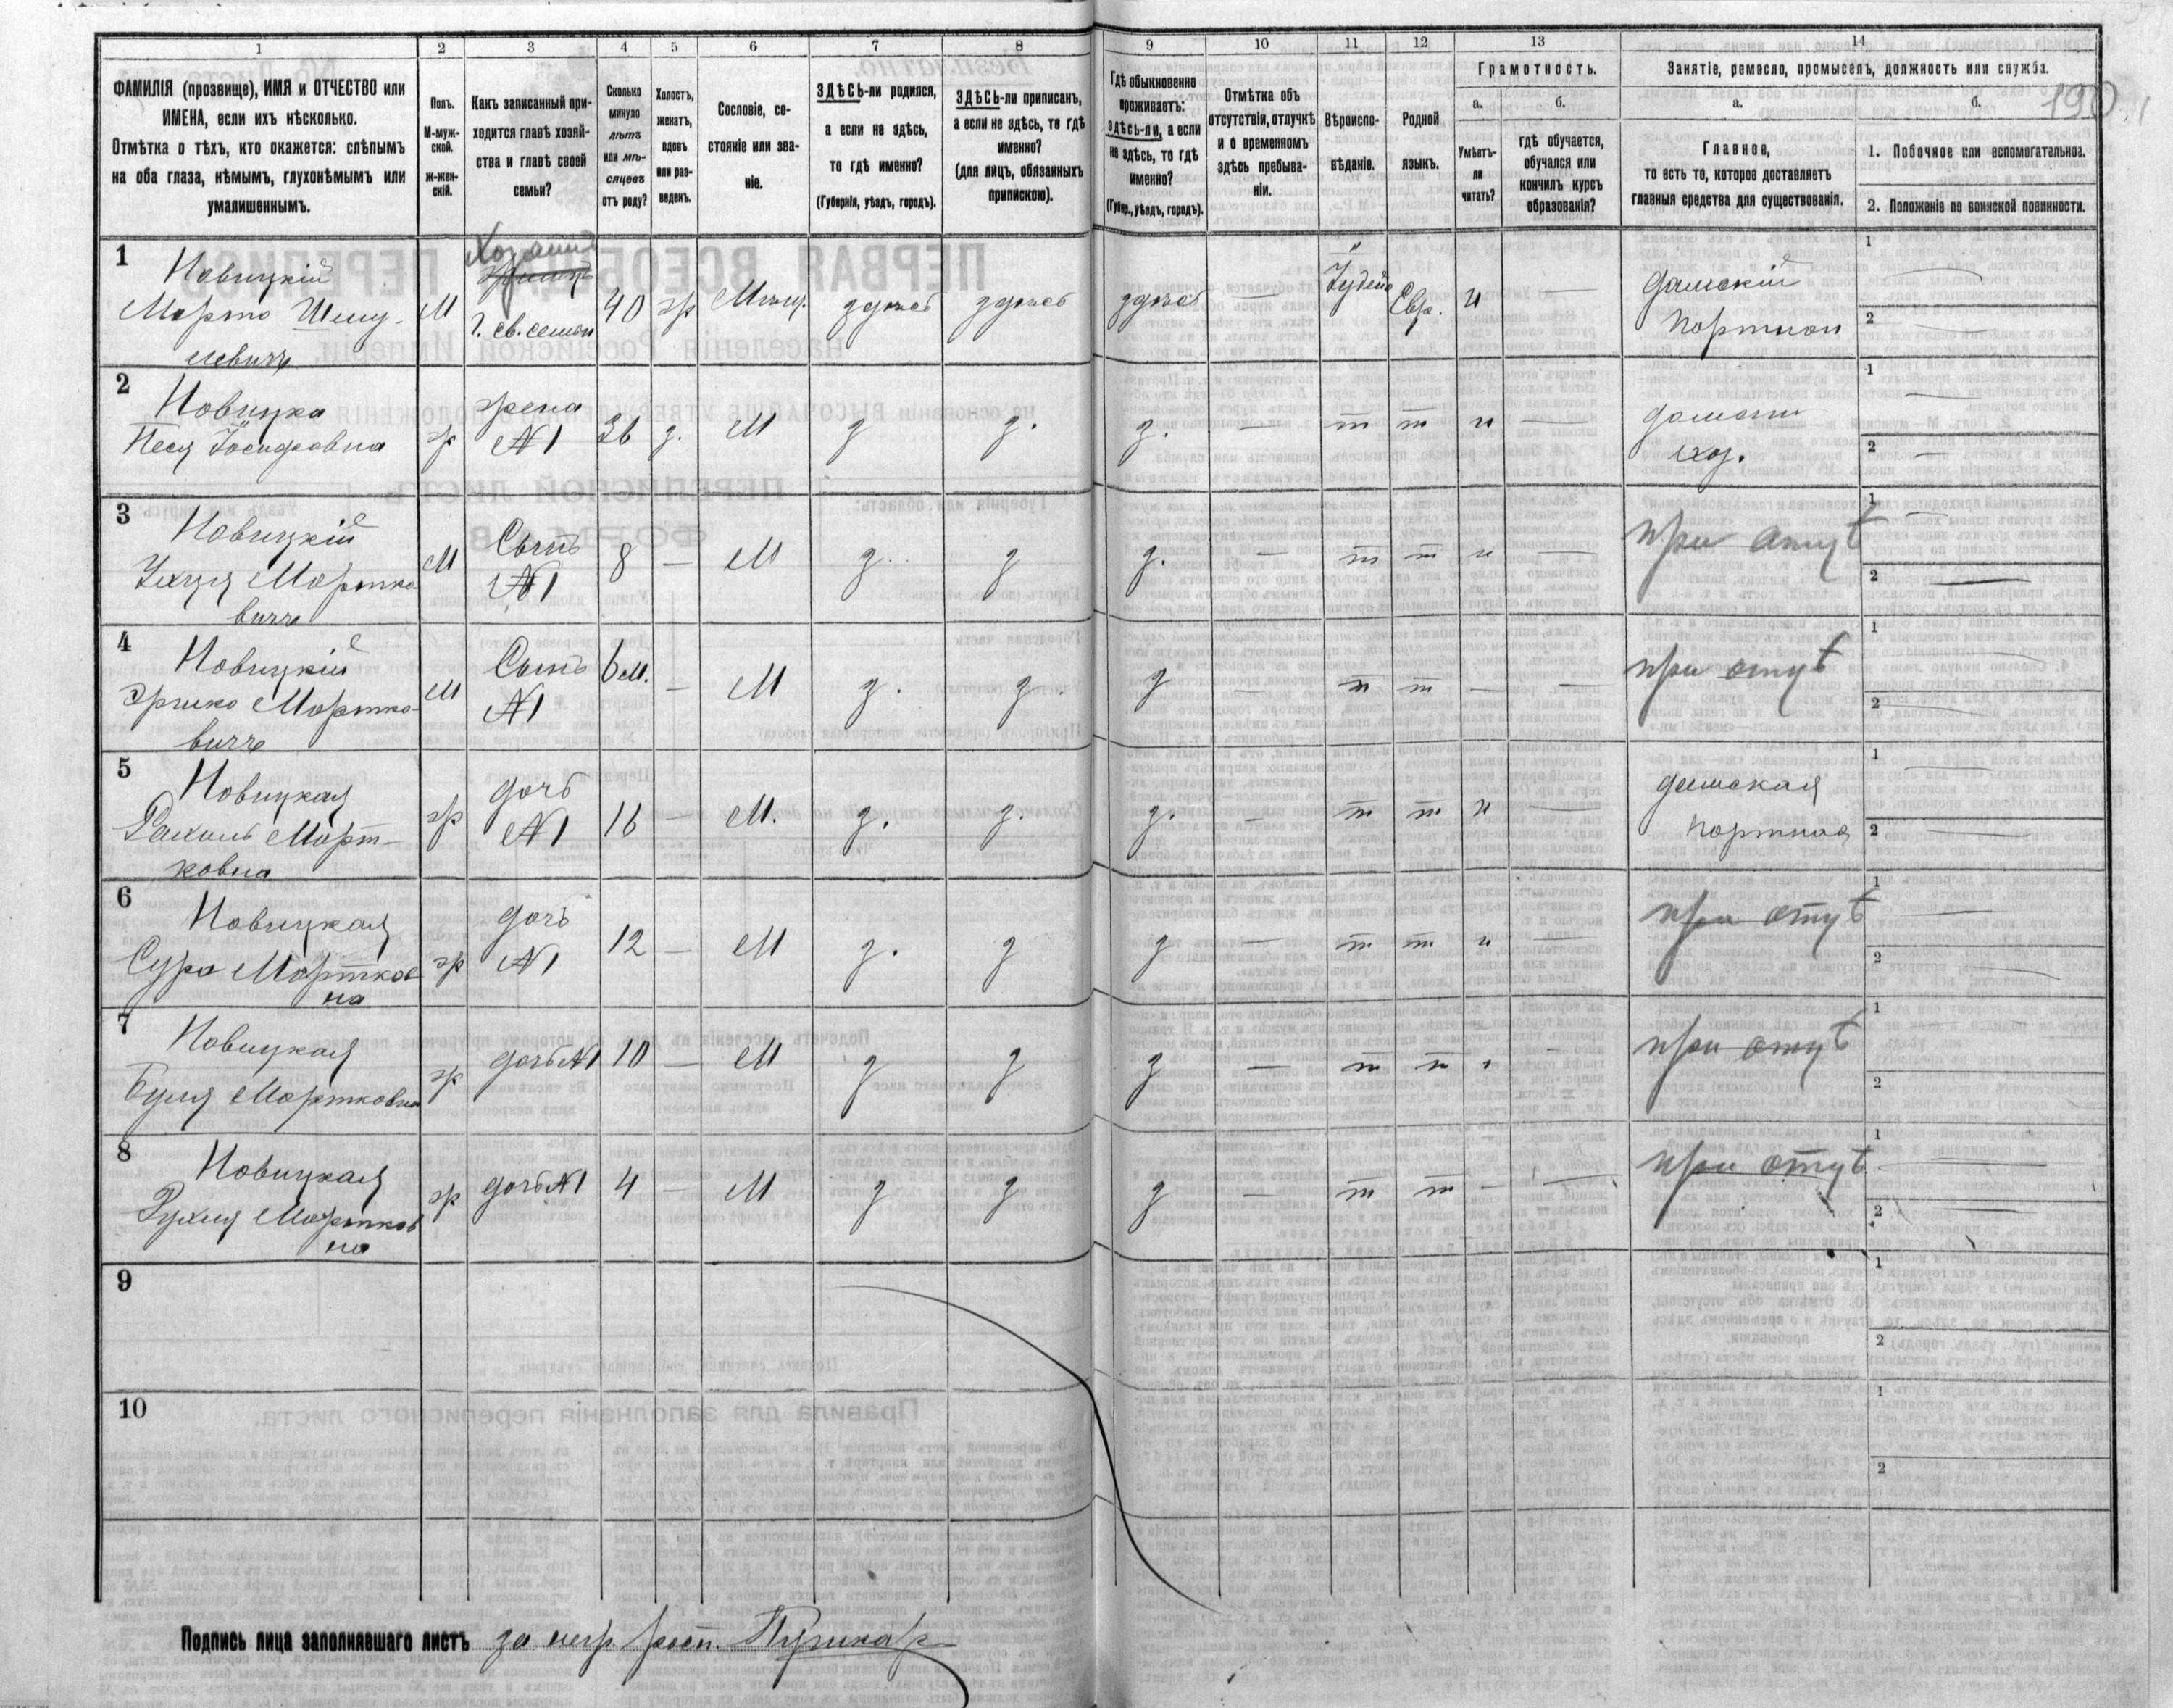 1 2 3 4 5 6 7 8 9 10 11 12 13 14
ФАМИЛІЯ (прозвище), ИМЯ и ОТЧЕСТВО или
ИМЕНА, если ихъ нѣсколько.
Отмѣтка о тѣхъ, кто окажется: слѣпымъ
на оба глаза, нѣмымъ, глухонѣмымъ или
умалишеннымъ.
Полъ.
М-муж-
ской.
ж-жен-
скій.
Какъ записанный при-
ходится главѣ хозяй-
ства и главѣ своей
семьи?
Сколько
минуло
лѣтъ
или мѣ-
сяцевъ
отъ роду?
Холостъ,
женатъ,
вдовъ
или раз-
веденъ.
Сословіе, со-
стояніе или зва-
ніе.
ЗДѢСЬ-ли родился,
а если не здѣсь,
то гдѣ именно?
(Губернія, уѣздъ, городъ).
ЗДѢСЬ-ли приписанъ,
а если не здѣсь, то гдѣ
именно?
(для лицъ, обязанныхъ
припискою).
Гдѣ обыкновенно
проживаетъ:
здѣсь-ли, а если
не здѣсь, то гдѣ
именно?
(Губер., уѣздъ, городъ).
Отмѣтка объ
отсутствіи, отлучкѣ
и о временномъ
здѣсь пребыва-
ніи.
Вѣроиспо-
вѣданіе.
Родной
языкъ.
Грамотность.
а. б.
Умѣетъ-
ли
читать?
гдѣ обучается,
обучался или
кончилъ курсъ
образованія?
Занятіе, ремесло, промыселъ, должность или служба.
а. б.
190
Главное,
то есть то, которое доставляетъ
главныя средства для существованія.
1. Побочное или вспомогательное.
2. Положеніе по воинской повинности.
1
Новицкій
Мортко Шму-
левичъ
М
Хозяинъ
г. св. семьи
40 ж Мѣщ. здѣсь здѣсь
здѣсь — Іудей Евр. и —
дамскій
портной
1 —
2 —
2
Новицка
Песя Іосифовна
ж
жена
№1
36 з. М з з.
з. — т т и —
домаш
хоз.
1 —
2 —
3
Новицкій
Мортко
вичъ
М
Сынъ
№1
8 — М з. з
з. — т т и —
при отцѣ
1 —
2 —
4
Новицкій
Гршко Мортко-
вичъ
М
Сынъ
№1
6 м. — М з. з.
з — т т — —
при отцѣ
1 —
2 —
5
Новицкая
Рахиль Морт-
ковна
ж
дочь
№1
16 — М. з. з.
з. — т т и —
дамская
портная
1 —
2 —
6
Новицкая
Сура Мортков
на
ж
дочь
№1
12 — М з. з
з — т т и —
при отцѣ
1 —
2 —
7
Новицкая
Мортковна
ж дочь №1 10 — М з з
з — т т и —
при отцѣ
1 —
2 —
8
Новицкая
Рухля Мортков
на
ж дочь №1 4 — М з з
з — т т — —
при отцѣ
1 —
2 —
9
1
2
10
1
2
Подпись лица заполнявшаго листъ за негр. росп.